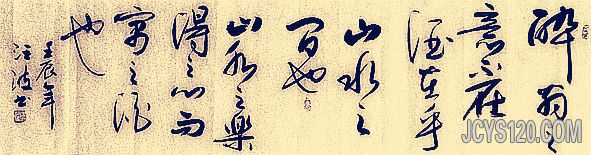 醉翁之
意不在
酒在乎
山水之
间也
山水之樂
得之心而
寓之酒
也
壬辰年
波书
JCYS120.COM